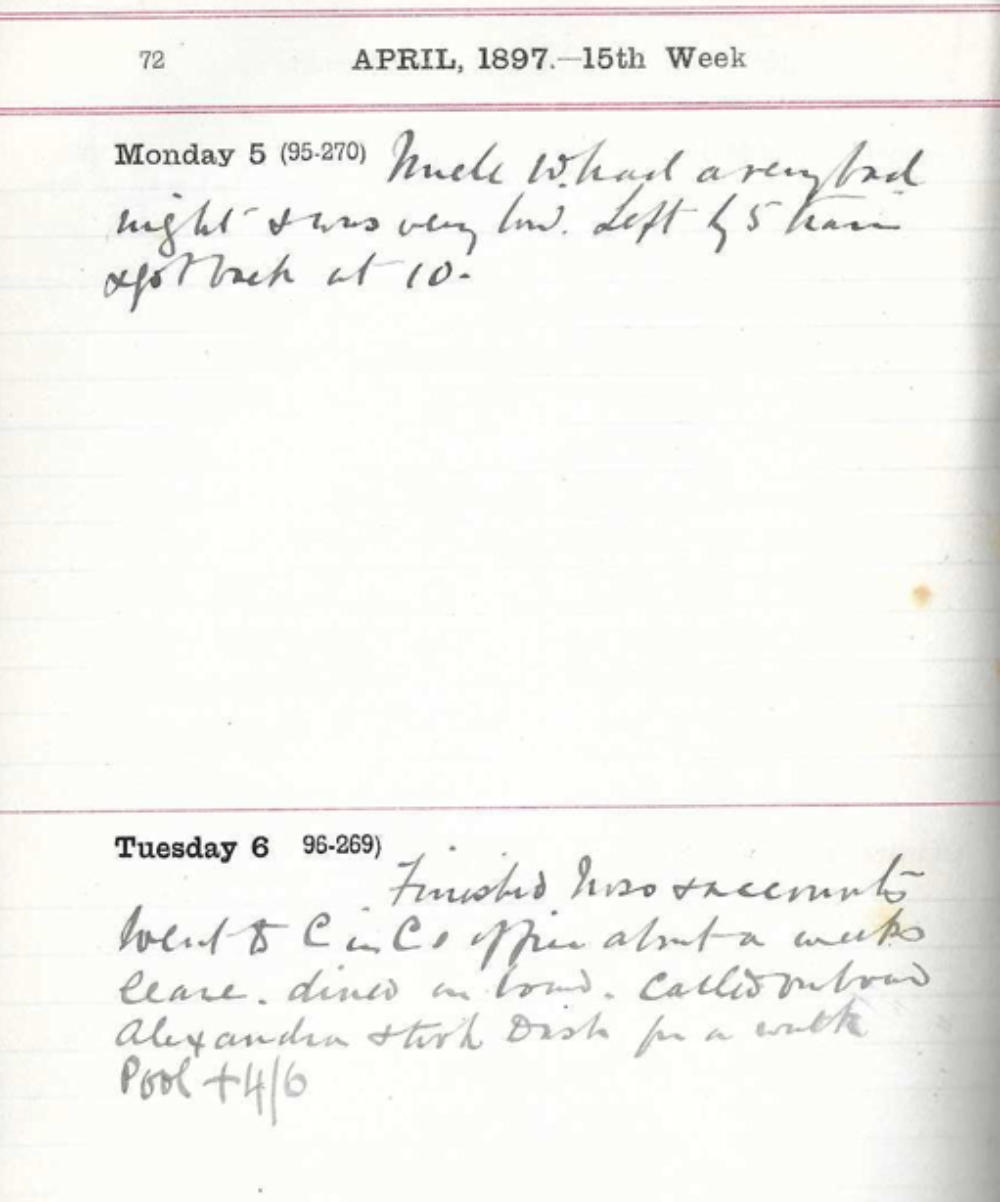 72 APRIL, 1897.—15th Week
Monday 5 (95-270) Uncle W. had a very bad
night & was very low. Left by 5 train
& got back at 10.
Tuesday 6 96-269)
Finished & accounts
Went to C in Cs office about a weeks
leave. dined on board. Called on board
Alexandra & took Dash for a walk
Pool + 4/6